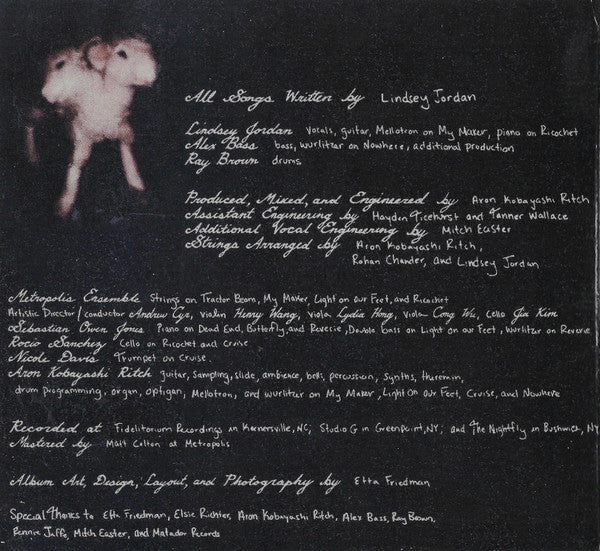 All Songs Written by Lindsey Jordan
Lindsey Jordan vocals, guitar, Mellotron on My Maker, piano on Ricochet
Alex Bass bass, wurlitzer on Nowhere, additional production
Ray Brown drums
Produced, Mixed, and Engineered by Aron Kobayashi Ritch
Assistant Engineering by Hayden Ticehurst and Tanner Wallace
Additional Vocal Engineering by Mitch Easter
Strings Arranged by Aron Kobayashi Ritch,
Rohan Chander, and Lindsey Jordan
Metropolis Ensemble Strings on Tractor Beam, My Maker, Light on Our Feet, and Ricochet
Artistic Director/conductor Andrew Cyr, violin Henry Wang, viola Lydia Hong, viola Cong Wu, Cello Jiu Kim
Sebastian Owen Jones Piano on Dead End, Butterfly, and Reverie, Double bass on Light on our Feet, Wurlitzer on Reverie
Rocio Sanchez Cello on Ricochet and Cruise
Nicole Davis Trumpet on Cruise
Aron Kobayashi Ritch guitar, sampling, slide, ambience, bells, percussion, synths, theremin,
drum programming, organ, optigan, Mellotron, and wurlitzer on My Maker, Light On Our Feet, Cruise, and Nowhere
Recorded at Fidelitorium Recordings in Kernersville, NC; Studio G in Greenpoint, NY; and The Nightfly in Bushwick, NY
Mastered by Matt Colton at Metropolis
Album Art, Design, Layout, and Photography by Etta Friedman
Special Thanks to Etta Friedman, Elsie Richter, Aron Kobayashi Ritch, Alex Bass, Ray Brown,
Rennie Jaffe, Mitch Easter, and Matador Records